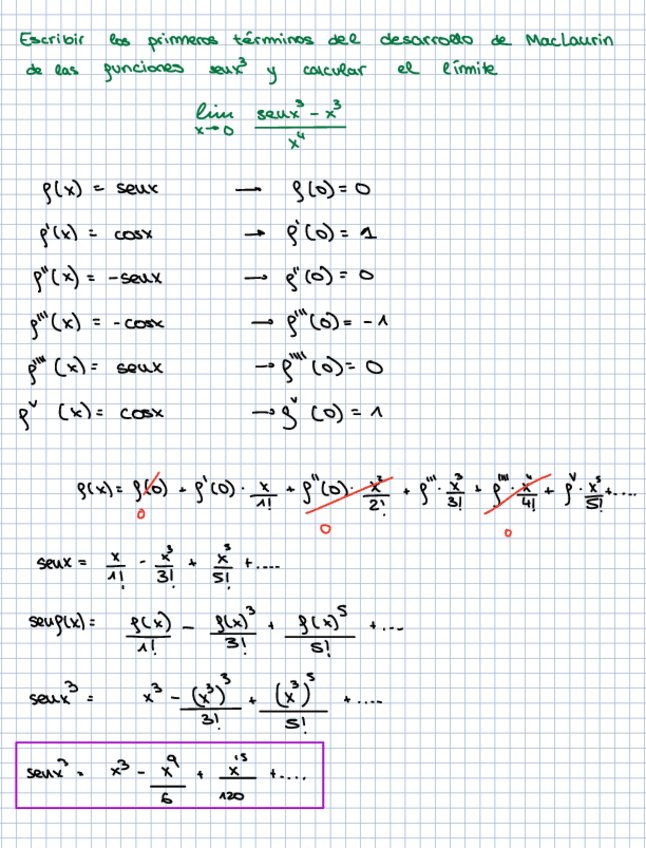 Escribir los primeros términos del desarrollo de MacLaurin
de las funciones senx³ y calcular el límite
lim x→0 (senx³ - x³) / x⁴
f(x) = senx → f(0) = 0
f'(x) = cosx → f'(0) = 1
f''(x) = -senx → f''(0) = 0
f'''(x) = -cosx → f'''(0) = -1
f''''(x) = senx → f''''(0) = 0
f^v (x) = cosx → f^v (0) = 1
f(x) = f(0) + f'(0) · x/1! + f''(0) · x²/2! + f''' · x³/3! + f'''' · x⁴/4! + f^v · x⁵/5! + ....
0 0 0
senx = x/1! - x³/3! + x⁵/5! + ....
senf(x) = f(x)/1! - f(x)³/3! + f(x)⁵/5! + ...
senx³ = x³ - (x³)³/3! + (x³)⁵/5! + ....
senx³ = x³ - x⁹/6 + x¹⁵/120 + ....